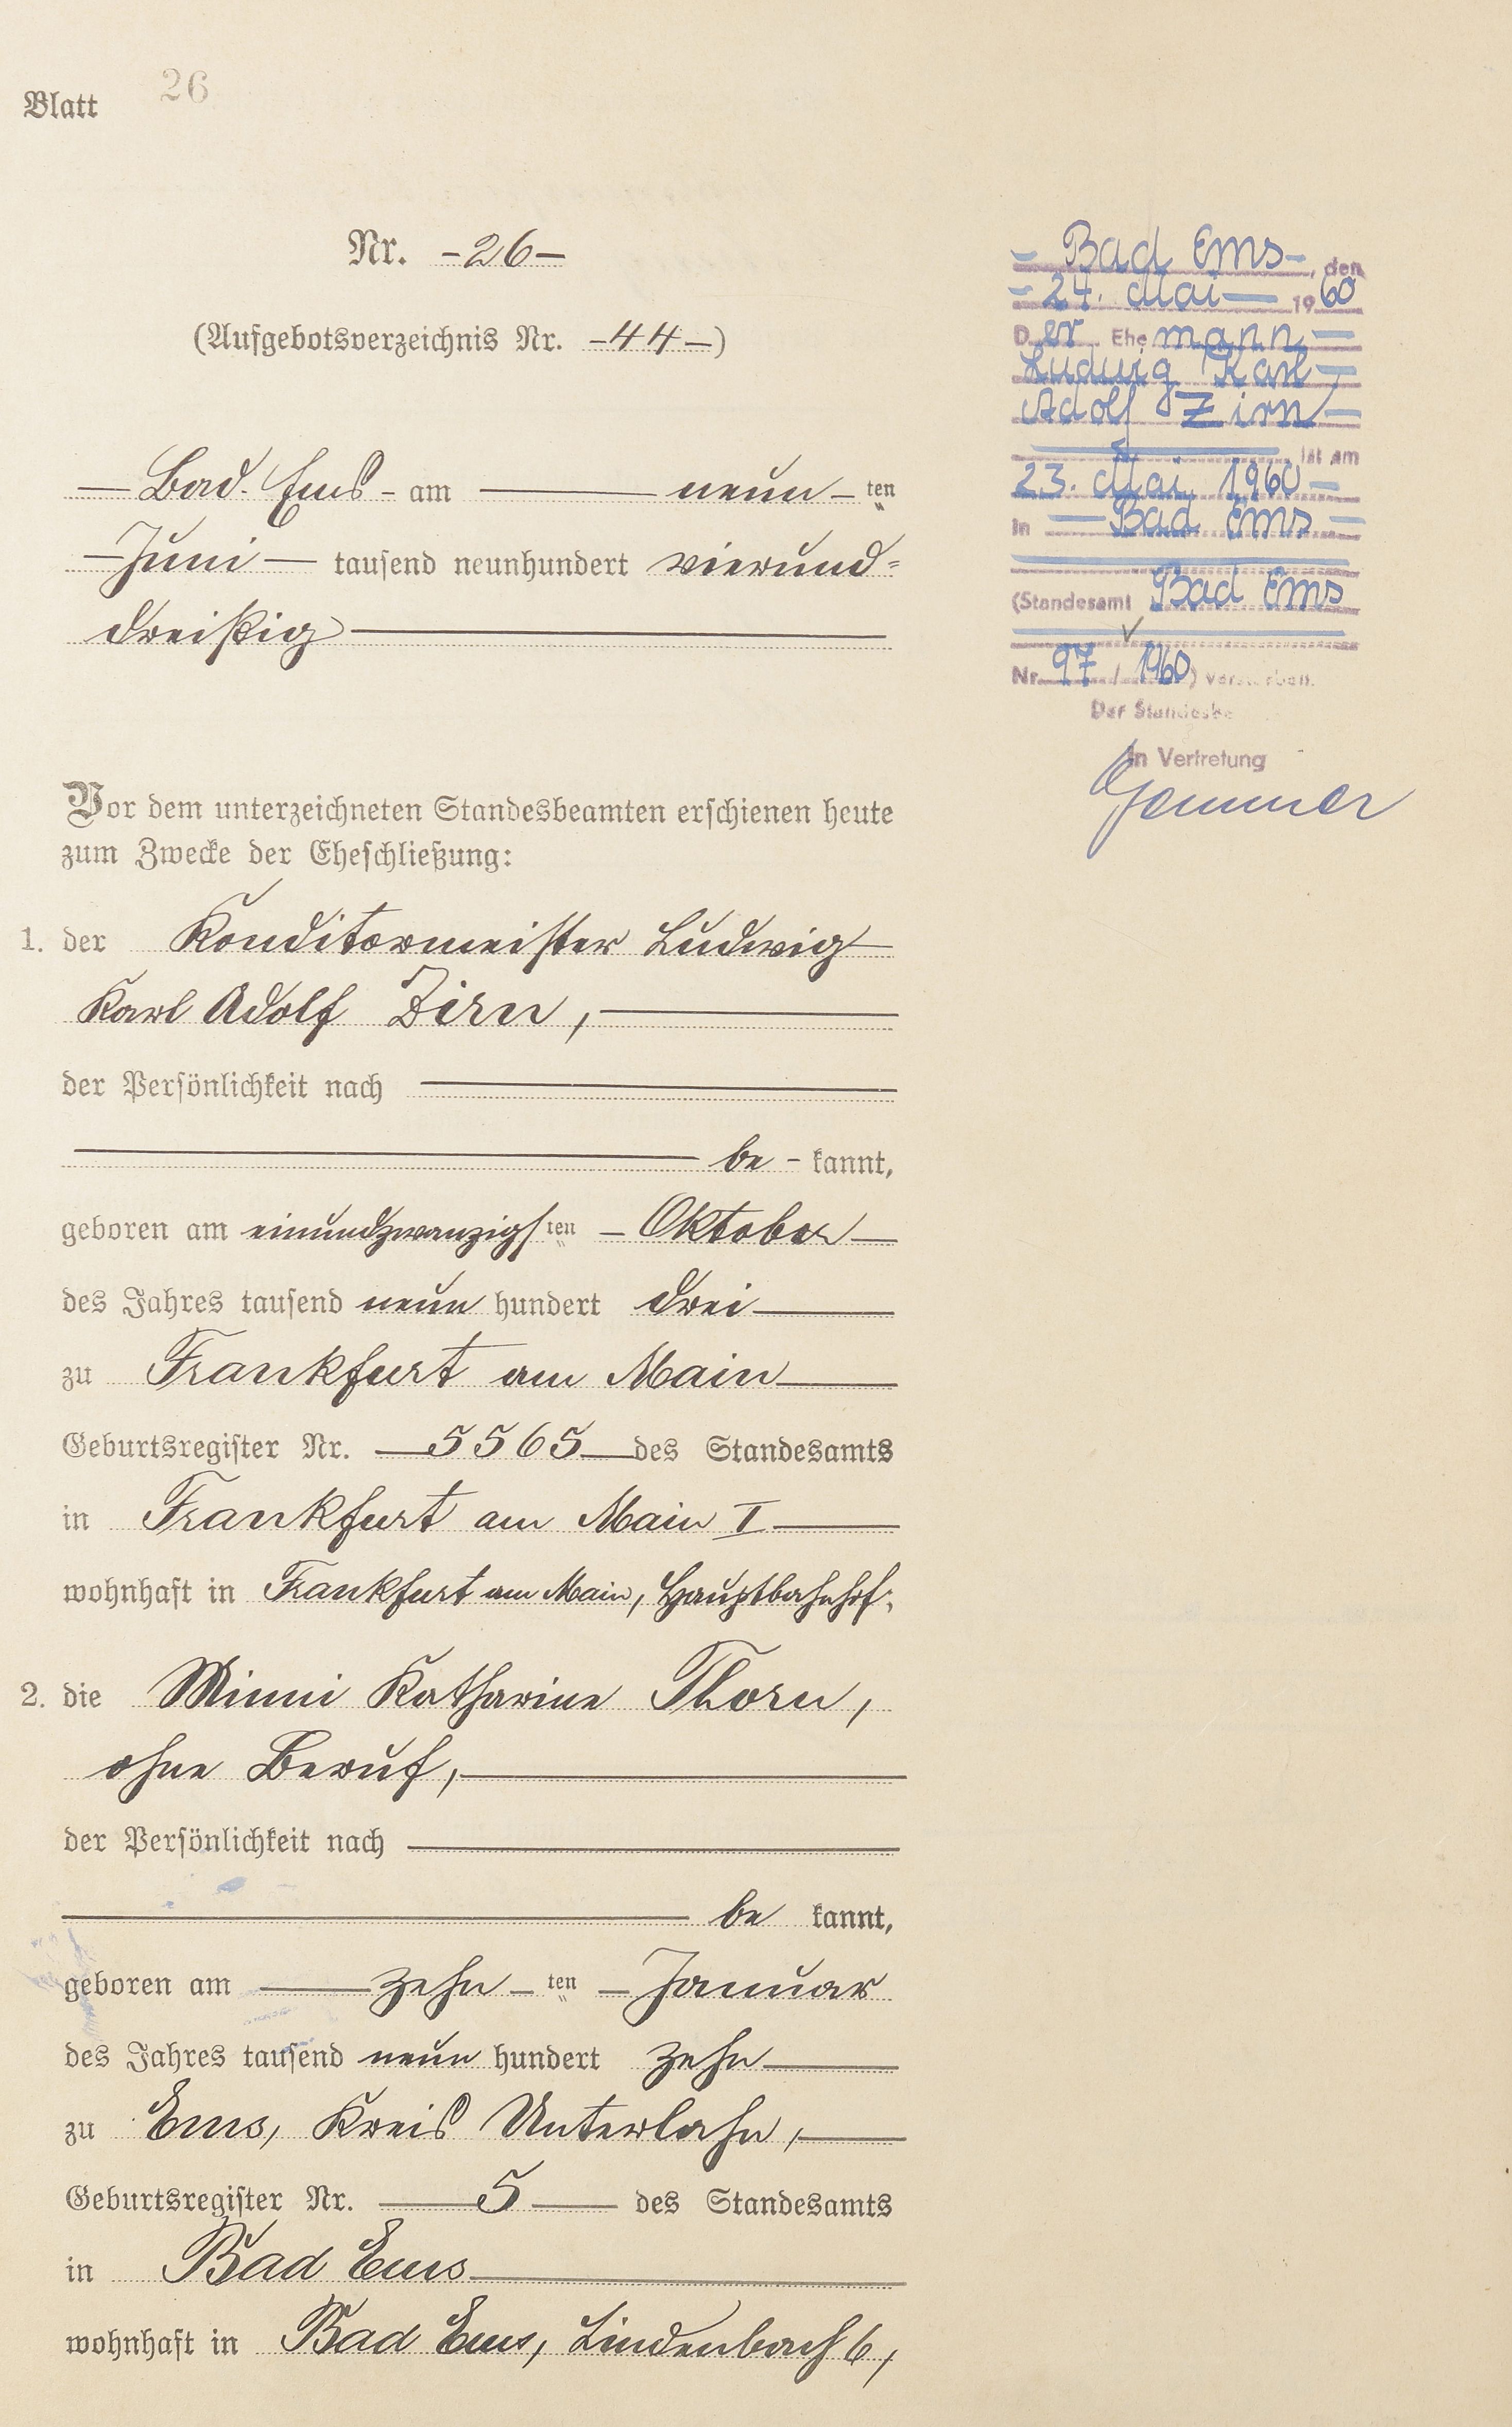 Blatt 26
Nr. -26-
(Aufgebotsverzeichnis Nr. -44-)
— Bad Ems - am — neun - ten
— Juni — tausend neunhundert vierund=
dreißig —
Vor dem unterzeichneten Standesbeamten erschienen heute
zum Zwecke der Eheschließung:
1. der Konditormeister Ludwig
Karl Adolf Zirn, —
der Persönlichkeit nach —
— be - kannt,
geboren am einundzwanzigsten - Oktober —
des Jahres tausend neun hundert drei —
zu Frankfurt am Main —
Geburtsregister Nr. — 5565 — des Standesamts
in Frankfurt am Main I —
wohnhaft in Frankfurt am Main, Hauptbahnhof;
2. die Minni Katharine Thorn,
ohne Beruf, —
der Persönlichkeit nach —
— be kannt,
geboren am — zehn - ten - Januar
des Jahres tausend neun hundert zehn —
zu Ems, Kreis Unterlahn, —
Geburtsregister Nr. — 5 — des Standesamts
in Bad Ems —
wohnhaft in Bad Ems, Lindenbach 6,
- Bad Ems -, den
- 24. Mai — 1960
Der Ehemann —
Ludwig Karl —
Adolf Zirn —
— ist am
23. Mai 1960 —
in — Bad Ems —
(Standesamt Bad Ems
Nr. 97 / 1960) verstorben.
Der Standesbe
In Vertretung